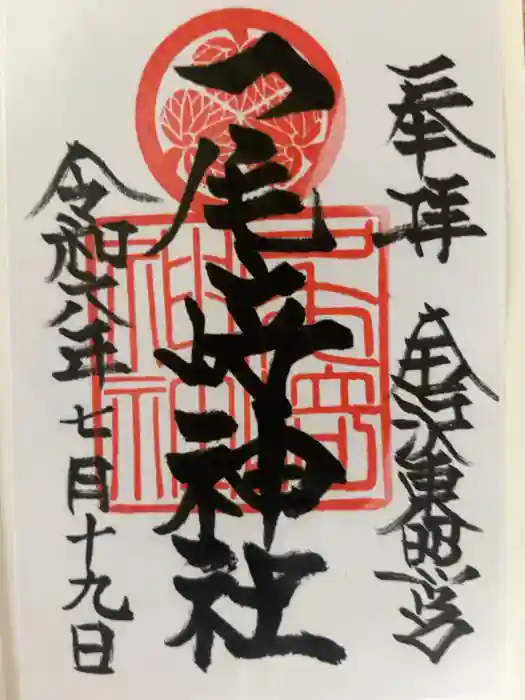 奉拝
金沢東照宮
尾﨑神社
令和六年
七月十九日